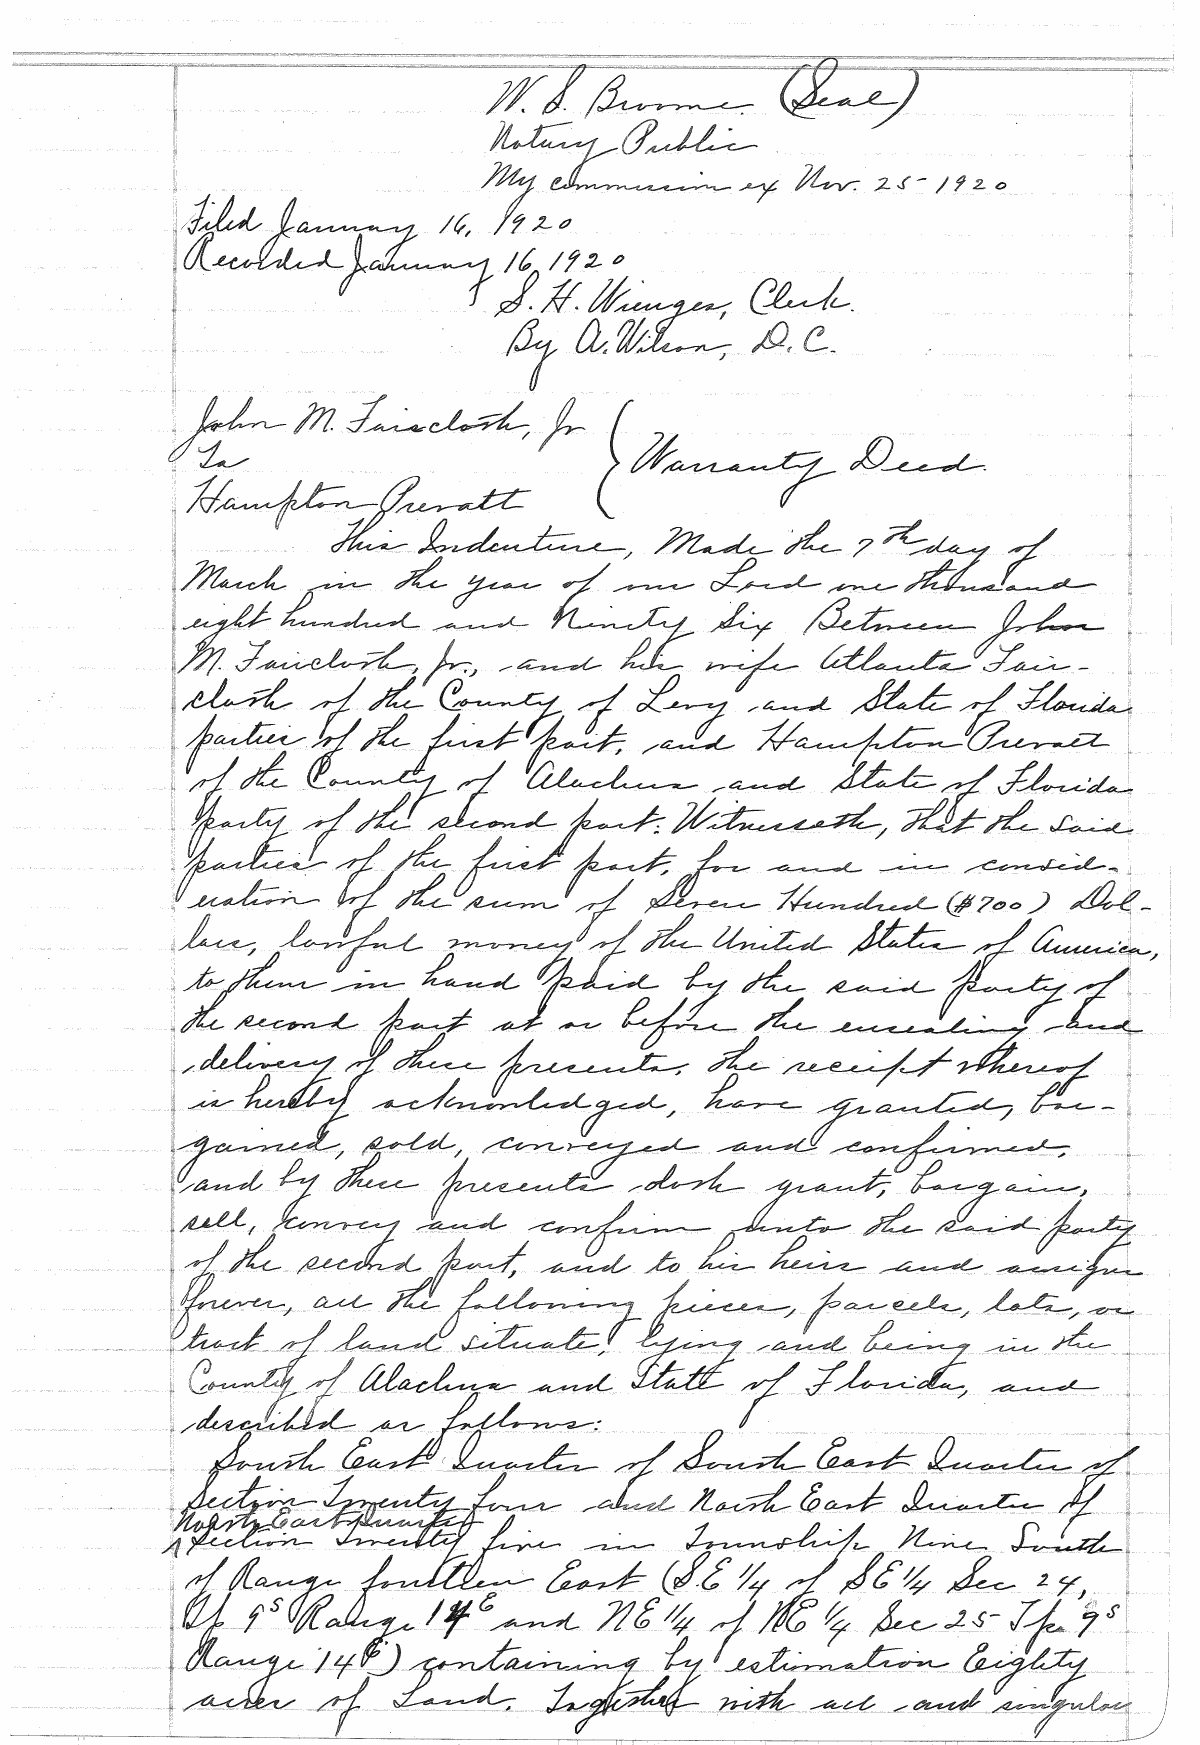 W. S. Broome. (Seal)
Notary Public
My commission ex Nov. 25 - 1920
Filed January 16, 1920
Recorded January 16, 1920
S. H. Wienges, Clerk.
By A. Wilson, D. C.
John M. Faircloth, Jr
To
Warranty Deed.
Hampton Prevatt
This Indenture, Made the 7th day of
March in the year of our Lord one thousand
eight hundred and Ninety Six Between John
M. Faircloth, Jr., and his wife Atlanta Fair-
cloth of the County of Levy and State of Florida
parties of the first part, and Hampton Prevatt
of the County of Alachua and State of Florida
party of the second part: Witnesseth, that the said
parties of the first part, for and in consid-
eration of the sum of Seven Hundred ($700) Dol-
lars, lawful money of the United States of America,
to them in hand paid by the said party of
the second part at or before the ensealing and
delivery of these presents, the receipt whereof
is hereby acknowledged, have granted, bar-
gained, sold, conveyed and confirmed,
and by these presents doth grant, bargain,
sell, convey and confirm unto the said party
of the second part, and to his heirs and assigns
forever, all the following pieces, parcels, lots, or
tract of land situate, lying and being in the
County of Alachua and State of Florida, and
described as follows:
South East Quarter of South East Quarter of
Section Twenty four and North East Quarter of
North East Quarter
Section Twenty five in Township Nine South
of Range fourteen East (S.E 1/4 of SE 1/4 Sec 24,
Tp 9S Range 14E and NE 1/4 of NE 1/4 Sec 25 - Tp 9S
Range 14E) containing by estimation Eighty
acres of Land. Together with all and singular